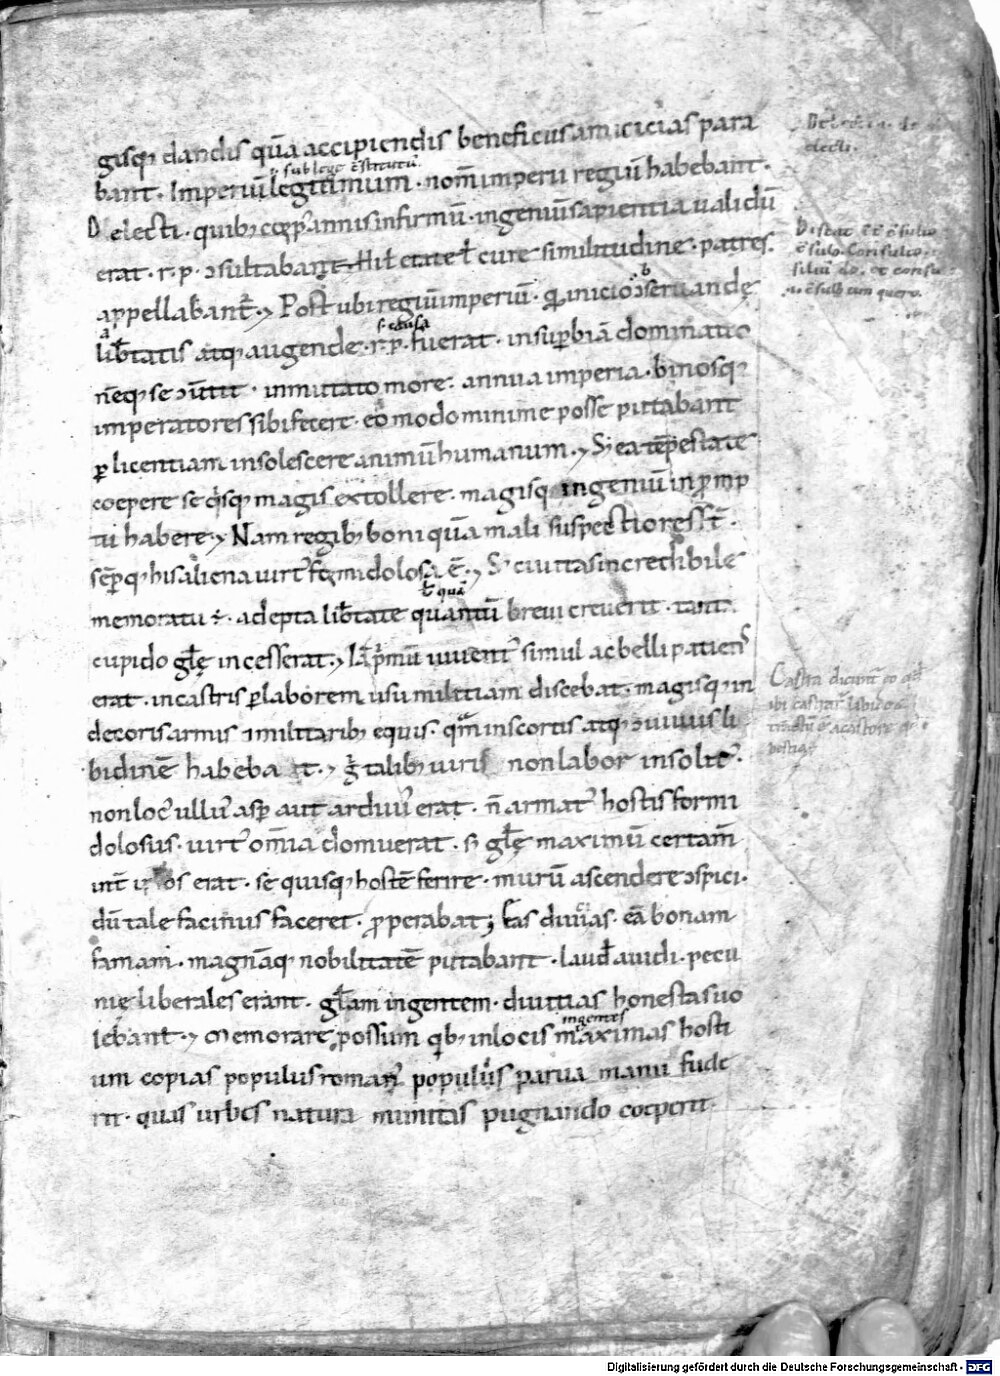 gisq; dandis quā accipiendis beneficus amicicias para
sub lege cstrictū.
bant. Imperiū legitimum. nom̄ imperii regiū habebant.
Delecti. quib; corp᷒ annis infirmū. ingeniū sapientia ualidū
erat. r. p. ɔsultabant. Hi ƚ etate ƚ cure similitudine. patres.
appellabant᷒. Post ubi regiū imperiū. qđ inicio ɔseruandę
s. causa
lib̄tatis atq; augende. r. p. fuerat. in sup̄biā dominatio
nēq; se ɔūtit. inmutato more. annua imperia. binosq;
imperatores sibi fecere. eo modo minime posse putabant
ꝑ licentiam insolescere animū humanum. S; ea tēpestate
coepere se q̇sq; magis extollere. magisq; ingeniū in ꝓmp
tu habere. Nam regib; boni quā mali suspectiores st̄.
sēꝑq; his aliena uirt᷒ formidolosa ē. S; ciuitas incredibile
ƚ quā
memoratu ÷. adepta lib̄tate quantū breui creuerit. tanta
cupido gƚę incesserat. Iā p̄mū iuuent᷒ simul ac belli patiens
erat. in castris ꝑ laborem usu militiam discebat. magisq; in
decoris armis ⁊ militarib; equis. qm̄ in scortis atq; ɔuiuiis li
bidinē habeba nt. g̊ talib; uiris non labor insolit᷒.
non loc᷒ ullus asp̄ aut arduus erat. n̄ armat᷒ hostis formi
dolosus. uirt᷒ om̄ia domuerat. s; gƚę maximū certam̄
int̄ ip os erat. se quisq; hostē ferire. murū ascendere ɔspici.
dū tale facinus faceret. ꝓperabat; Eas diuitias. eā bonam
famam. magnāq; nobilitatē putabant. laud̄ auidi. pecu
nię liberales erant. gƚam ingentem. diuitias honestas uo
ingentes
lebant. Memorare possum qb; in locis maximas hosti
um copias populus roman᷒ populus parua manu fude
rit. quas urbes natura munitas pugnando coeperit.
Delecti
electi.
ɔsulo. Consulo
siliū do. et consu
ɔsulū quero.
Castra dicunt᷒ eo qđ
ibi castrar᷒ libido